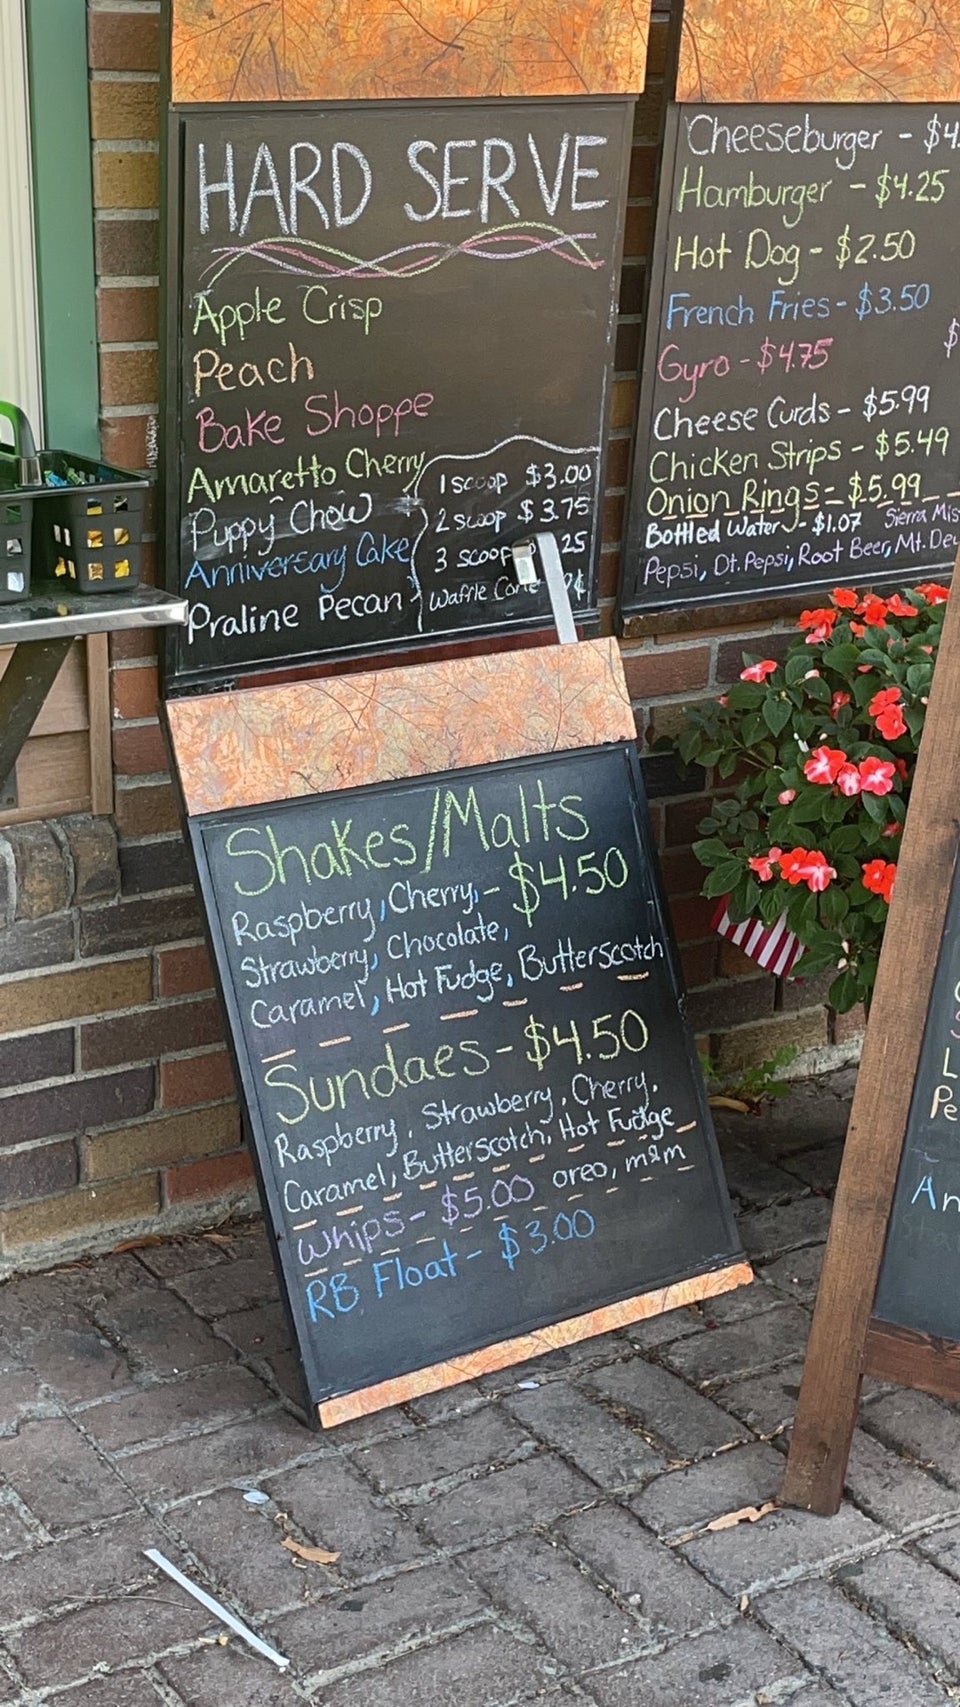 HARD SERVE
Apple Crisp
Peach
Bake Shoppe
Amaretto Cherry
Puppy Chow
Anniversary Cake
Praline Pecan
1 scoop $3.00
2 scoop $3.75
3 scoop 25
Waffle Cone ¢
Cheeseburger - $4.
Hamburger - $4.25
Hot Dog - $2.50
French Fries - $3.50
$
Gyro - $4.75
Cheese Curds - $5.99
Chicken Strips - $5.49
Onion Rings - $5.99
Bottled Water - $1.07 Sierra Mis
Pepsi, Dt. Pepsi, Root Beer, Mt. Dew
Shakes/Malts
Raspberry, Cherry, - $4.50
Strawberry, Chocolate,
Caramel, Hot Fudge, Butterscotch
Sundaes - $4.50
Raspberry, Strawberry, Cherry,
Caramel, Butterscotch, Hot Fudge
Whips - $5.00 oreo, m&m
RB Float - $3.00
L
Pe
An